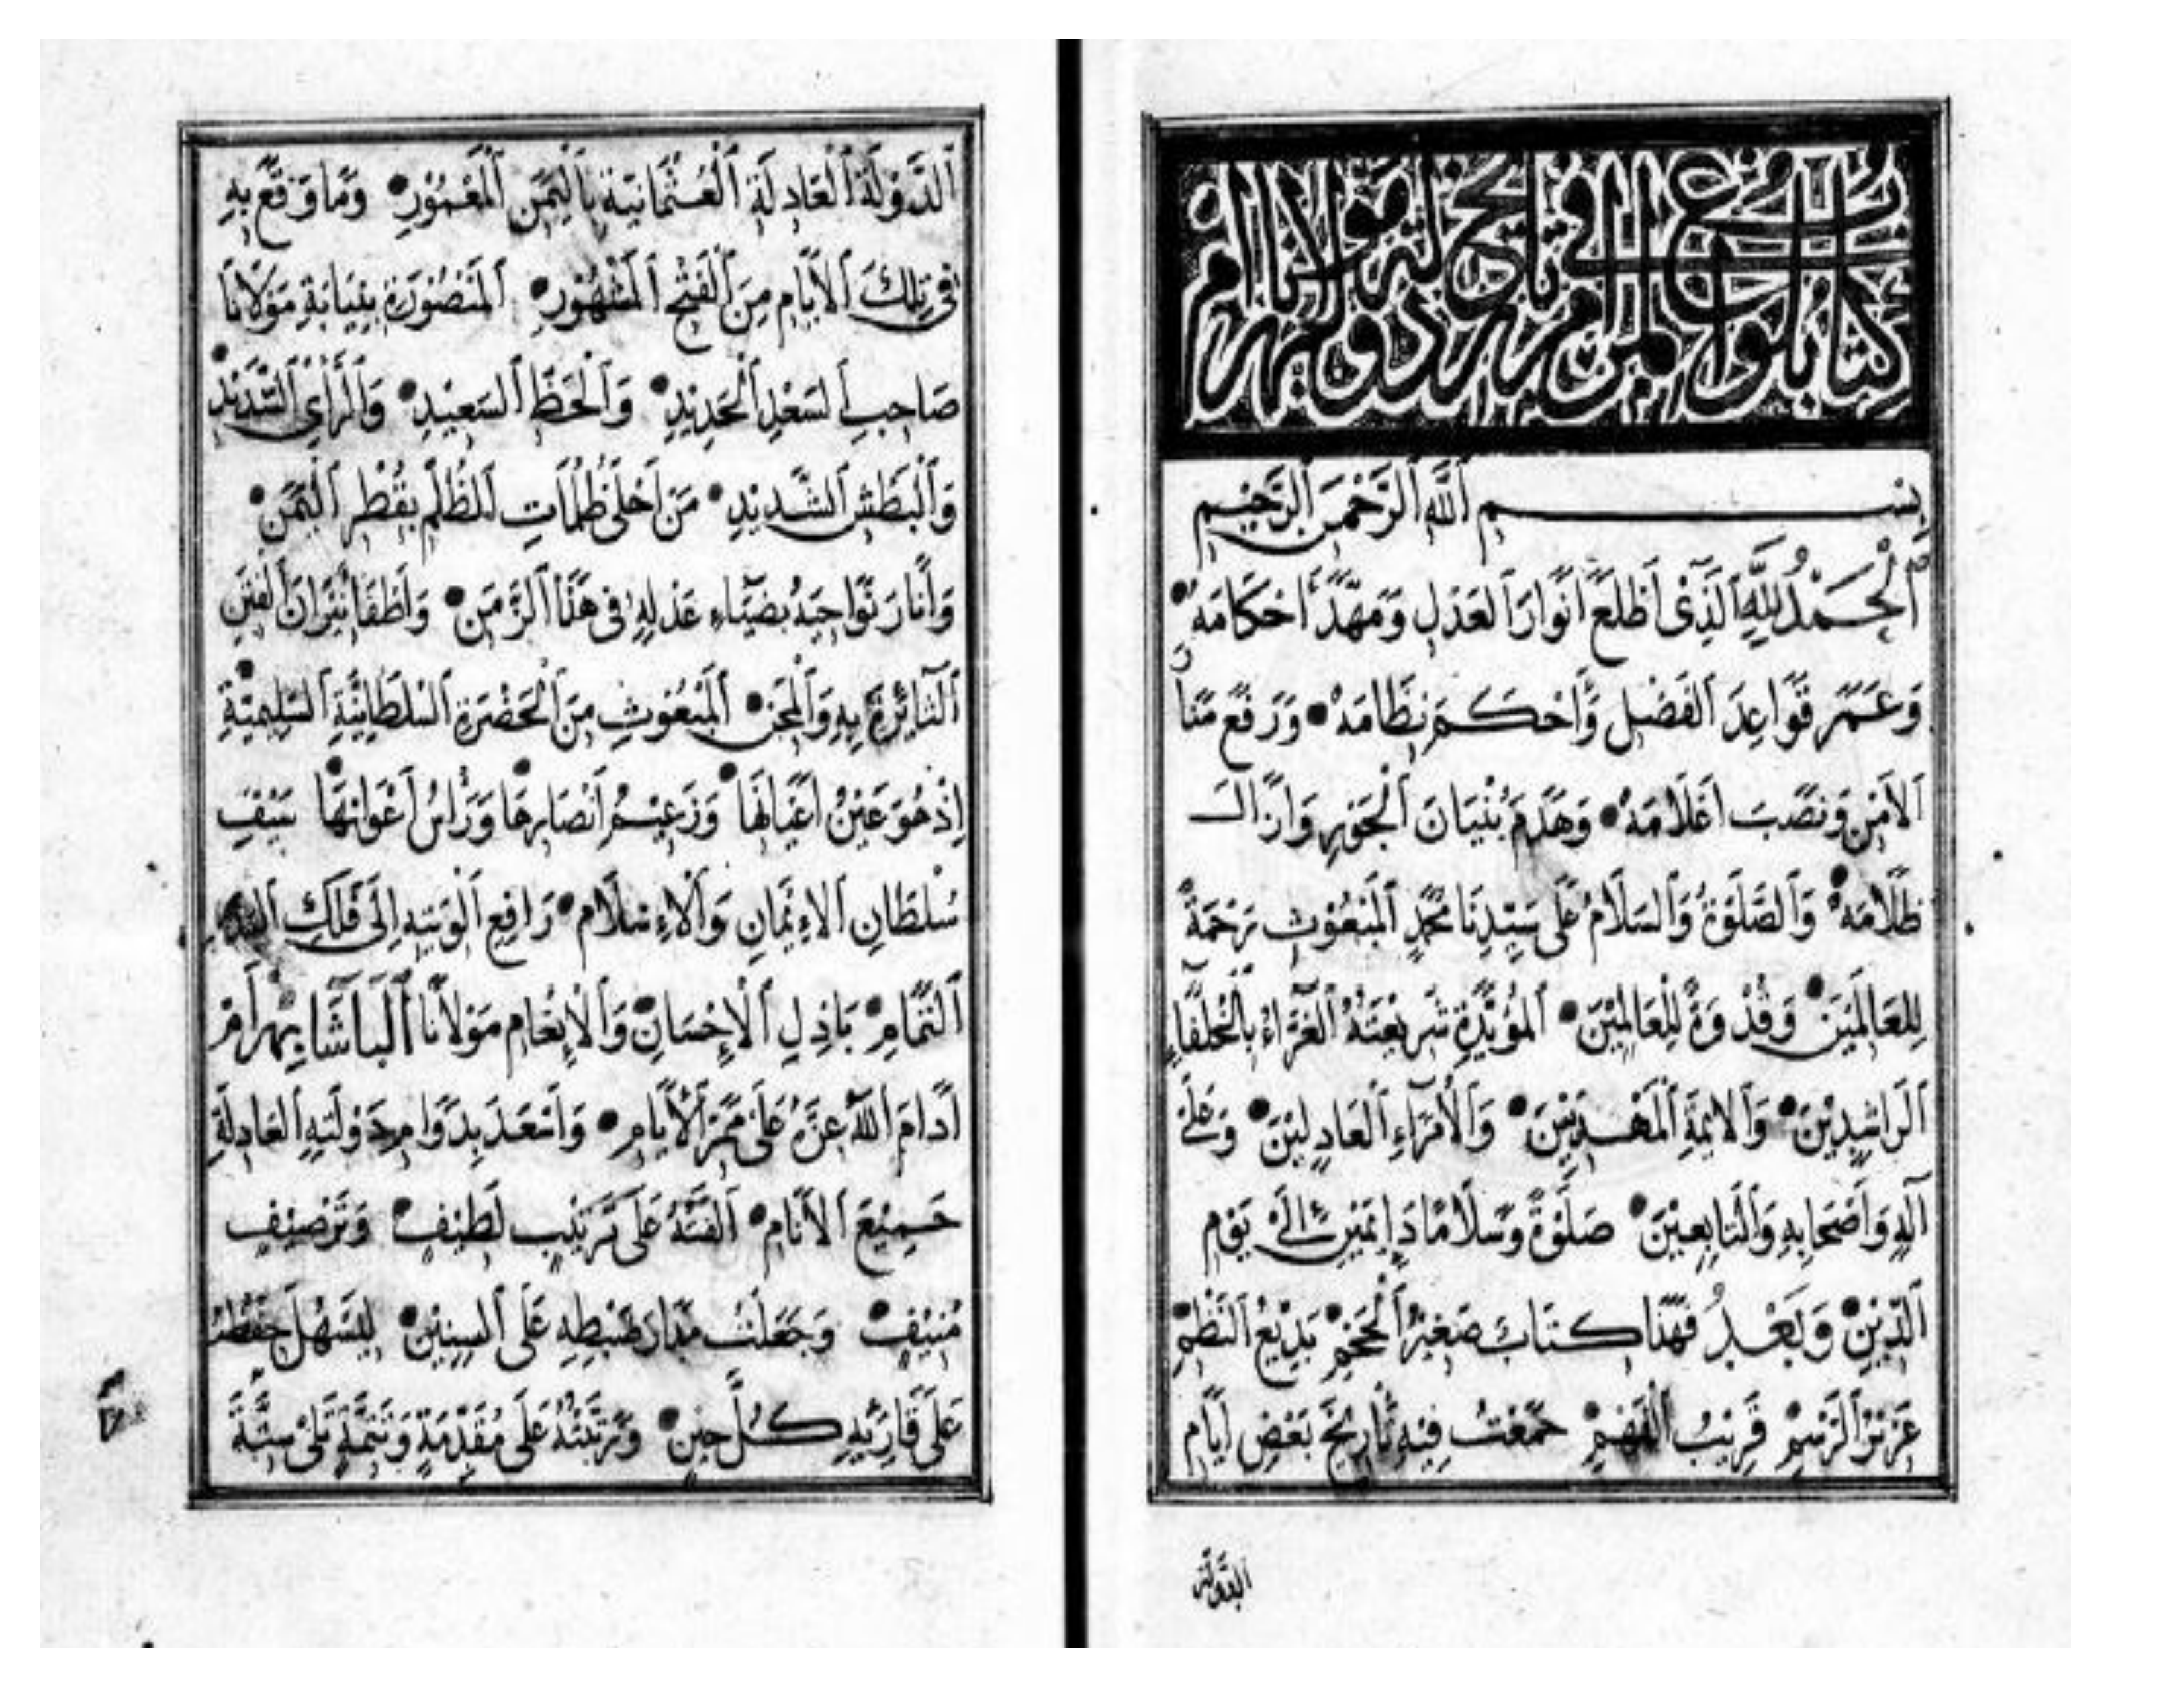 كتاب بلوغ المرام في تاريخ دولة مولانا بهرام
بِسْمِ ٱللَّهِ ٱلرَّحْمٰنِ ٱلرَّحِيمِ
ٱلْحَمْدُ لِلَّهِ ٱلَّذِي أَطْلَعَ أَنْوَارَ ٱلْعَدْلِ وَمَهَّدَ أَحْكَامَهُ
وَعَمَّرَ قَوَاعِدَ ٱلْفَضْلِ وَأَحْكَمَ نِظَامَهُ وَرَفَعَ مَنَارَ
ٱلْأَمْنِ وَنَصَبَ أَعْلَامَهُ وَهَدَمَ بُنْيَانَ ٱلْجَوْرِ وَأَزَالَ
ظَلَامَهُ وَٱلصَّلَوٰةُ وَٱلسَّلَامُ عَلَى سَيِّدِنَا مُحَمَّدٍ ٱلْمَبْعُوثِ رَحْمَةً
لِلْعَالَمِينَ وَقُدْوَةً لِلْعَالِمِينَ ٱلْمُؤَيَّدَةِ شَرِيعَتُهُ ٱلْغَرَّاءُ بِٱلْخُلَفَاءِ
ٱلرَّاشِدِينَ وَٱلْأَئِمَّةِ ٱلْمَهْدِيِّينَ وَٱلْأُمَرَاءِ ٱلْعَادِلِينَ وَعَلَى
آلِهِ وَأَصْحَابِهِ وَٱلتَّابِعِينَ صَلَوٰةً وَسَلَامًا دَائِمَيْنِ إِلَى يَوْمِ
ٱلدِّينِ وَبَعْدُ فَهَذَا كِتَابٌ صَغِيرُ ٱلْحَجْمِ بَدِيعُ ٱلنَّظْمِ
عَزِيزُ ٱلرَّسْمِ قَرِيبُ ٱلْفَهْمِ جَمَعْتُ فِيهِ تَارِيخَ بَعْضِ أَيَّامِ
الدولة
ٱلدَّوْلَةِ ٱلْعَادِلَةِ ٱلْعُثْمَانِيَّةِ بِٱلْيَمَنِ ٱلْمَعْمُورِ وَمَا وَقَعَ بِهِ
فِي تِلْكَ ٱلْأَيَّامِ مِنَ ٱلْفَتْحِ ٱلْمَشْهُورِ ٱلْمَنْصُورَةِ بِنِيَابَةِ مَوْلَانَا
صَاحِبِ ٱلسَّعْدِ ٱلْجَدِيدِ وَٱلْحَظِّ ٱلسَّعِيدِ وَٱلرَّأْيِ ٱلسَّدِيدِ
وَٱلْبَطْشِ ٱلشَّدِيدِ مَنْ أَجْلَى ظُلُمَاتِ ٱلظُّلْمِ بِقُطْرِ ٱلْيَمَنِ
وَأَنَارَ نَوَاحِيَهُ بِضِيَاءِ عَدْلِهِ فِي هَذَا ٱلزَّمَنِ وَأَطْفَأَ نِيرَانَ ٱلْفِتَنِ
ٱلثَّائِرَةِ بِهِ وَٱلْمِحَنِ ٱلْمَبْعُوثِ مِنَ ٱلْحَضْرَةِ ٱلسُّلْطَانِيَّةِ ٱلسَّلِيمِيَّةِ
إِذْ هُوَ عَيْنُ أَعْيَانِهَا وَزَعِيمُ أَنْصَارِهَا وَرَأْسُ أَعْوَانِهَا سَيْفِ
سُلْطَانِ ٱلْإِيمَانِ وَٱلْإِسْلَامِ رَافِعِ أَلْوِيَتِهِ إِلَى فَلَكِ
ٱلتَّمَامِ بَاذِلِ ٱلْإِحْسَانِ وَٱلْإِنْعَامِ مَوْلَانَا ٱلْبَاشَا بِهْرَامْ
أَدَامَ ٱللَّهُ عِزَّهُ عَلَى مَمَرِّ ٱلْأَيَّامِ وَأَسْعَدَ بِدَوَامِ دَوْلَتِهِ ٱلْعَادِلَةِ
جَمِيعَ ٱلْأَنَامِ أَلَّفْتُهُ عَلَى تَرْتِيبٍ لَطِيفٍ وَتَرْصِيفٍ
مُنِيفٍ وَجَعَلْتُ مَدَارَ ضَبْطِهِ عَلَى ٱلسِّنِينَ لِيَسْهُلَ حِفْظُهُ
عَلَى قَارِئِهِ كُلَّ حِينٍ وَرَتَّبْتُهُ عَلَى مُقَدِّمَةٍ وَتَتِمَّةٍ تَلِي سِتَّةَ